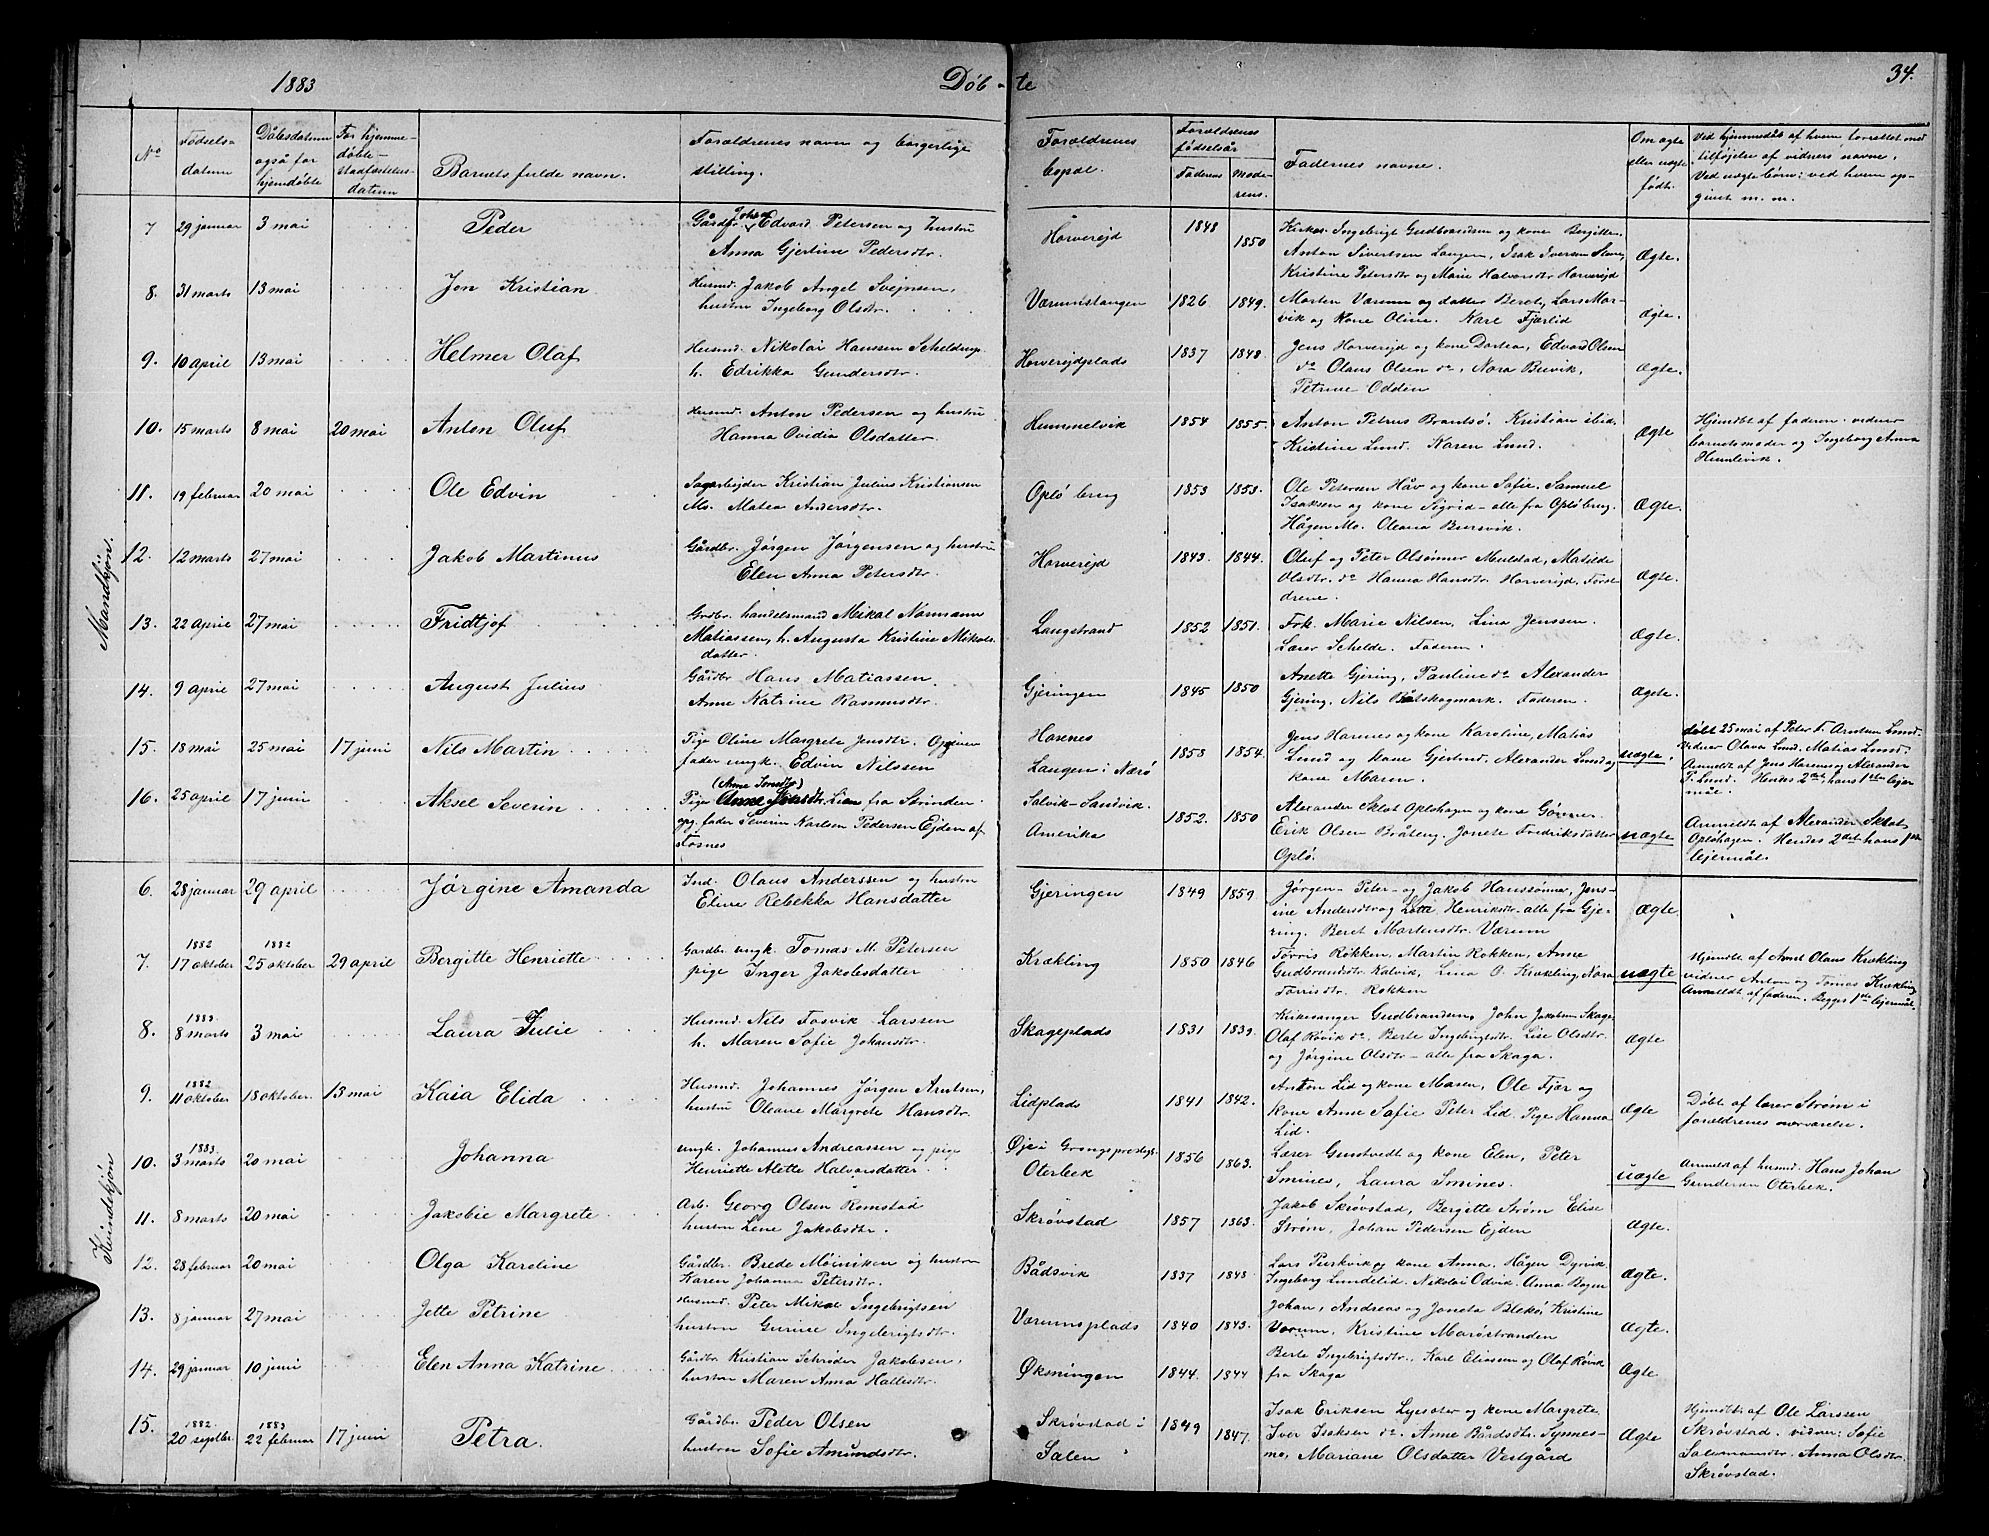 1883 Døbte 34.
No Fødselsdatum Dåbsdatum også for hjemdøbte For hjemmedøbte - stadfæstelsesdatum Barnets fulde navn. Forældrenes navn og borgerlige stilling. Forældrenes bopæl. Forældrenes fødselsår Faderens Moderens. Faddernes navne. Om ægte eller uægte født. Ved hjemmedåb af hvem, forrettet med tilføjelse af vidners navne. Ved uægte børn: ved hvem opgivet m. m.
Mandkjøn.
7 29 januar 3 mai Peder Gårdbr. Johan Edvard Petersen og hustru
Anna Gjertine Pedersdtr. Horverejd 1848 1850 Kirkes. Ingebrigt Gudbrandsen og kone Bergitte.
Anton Sivertsen Langen, Isak Iversen
Kristine Petersdtr og Marie Halvorsdtr Horverejd Ægte.
8. 31 marts 13 mai Jon Kristian Husmd. Jakob Angel Svejnsen,
hustru Ingeborg Olsdtr. Værumstangen 1826 1849. Morten Værum og datter Beret, Lars Mar-
vik og kone Oline. Karl Fjærlid Ægte.
9. 10 april 13 mai Helmer Olaf Husmd. Nikolai Hanssen Schelderup.
h. Edrikka Gundersdtr. Horverejdplads 1837 1848. Jens Horverejd og kone Dortea, Edvard Olsen
do Olaus Olsen do, Nora Buvik,
Petrine Odden Ægte.
10. 15 marts 8 mai 20 mai Anton Oluf Husmd. Anton Pedersen og hustru
Hanna Ovidia Olsdatter. Hummelvik 1854 1855. Anton Petrus Brandsö. Kristian ibid.
Kristine Lund. Karen Lund. Ægte Hjemdbt af faderen. vidner
barnetsmoder og Ingeborg Anna
Humlevik.
11. 19 februar 20 mai Ole Edvin Sagarbejder Kristian Julius Kristiansen
Ms. Matea Andersdtr. Oplø brug 1853 1853. Ole Petersen Håv og kone Sofie, Samuel
Isaksen og kone Sigrid - alle fra Opløbrug.
Hågen Mo. Oleana Bursvik. Ægte.
12. 12 marts 27 mai Jakob Martinus Gårdbr. Jørgen Jørgensen og hustru
Elen Anna Petersdtr. Horverejd 1843. 1844. Oluf og Peter Olsønner Mulstad, Matilde
Olsdtr. do Hanna Hansdtr Horverejd, Foræl-
drene. Ægte
13. 22 april 27 mai Fridtjof Grdbr. handelsmand Mikal Normann
Matiassen, h. Augusta Kristine Mikals-
datter. Langstrand 1852 1851. Frk. Marie Nilsen, Lina Jenssen.
Lærer Schelde. Faderen. Ægte
14. 9 april 27 mai August Julius Gårdbr Hans Matiassen.
Anne Katrine Rasmusdtr. Gjeringen 1845 1850 Anette Gjering, Pauline do Alexander
Gjering, Nils Kålskogmark. Faderen. Ægte.
15. 18 mai 25 mai 17 juni Nils Martin Pige Oline Margrete Jensdtr. Opgiven
fader ungk. Edvin Nilssen Horsnes
Langen i Nærø 1853 1854. Jens Harnes og kone Karoline, Matias
Lund og kone Gjertrud, Alexander Lund og
kone Maren. uægte. døbt 25 mai af Peter F. Arntsen Lund.
vidner Olava Lund. Matias Lund.
Anmeldt af Jens Horsnes og Alexander
P. Lund. Hendes 2det, hans 1ste lejer-
mål.
16. 25 april 17 juni Aksel Severin (Anne Jensdtr)
Pige Lian fra Strinden.
opg. fader Severin Karlsen Pedersen Ejden af
Fosnes Salvik-Sandvik.
Amerika 1852. 1850 Alexander Sklet Opløhagen og kone Gønner
Erik Olsen Bråteng. Jonete Fredriksdatter
Oplø. uægte Anmeldt af Alexander Sklet
Opløhagen. Hendes 2det hans 1ste
lejermål.
Kvindekjøn
6. 28 januar 29 april Jørgine Amanda Ind. Olaus Anderssen og hustru
Eline Rebekka Hansdatter Gjeringen 1849 1859 Jørgen - Peter - og Jakob Hanssønner, Jens-
ine Andersdtr og Lotte Henriksdtr. alle fra Gje-
ring. Beret Mortensdtr. Værum Ægte
7. 1882 17 oktober 1882 25 oktober 29 april Bergitte Henriette Gardbr. ungk. Tomas M. Petersen
pige Inger Jakobsdatter Krækling 1850 1846 Torris Rokken, Martin Rokken, Anne
Gudbrandsdtr Kalvik, Lina O. Krækling, Nora
Torrisdtr. Rokken uægte Hjemdbt af Arnt Olaus Krækling
vidner Anton og Tomas Krækling.
Anmeldt af faderen. Begges 1ste lejermål.
8. 1883 8 marts 3 mai Laura Julie Husmd. Nils Tosvik Larssen
h. Maren Sofie Johansdtr. Skageplads 1831 1839. Kirkesanger Gudbrandsen, John Jakobsen Skage,
Olaf Røvik do, Berte Ingebrigtsdtr. Lise Olsdtr.
og Jørgine Olsdtr - alle fra Skaga. Ægte
9. 1882 11 oktober 18 oktober. 13 mai Kaia Elida Husmd. Johannes Jørgen Arntsen,
hustru Oleane Margrete Hansdtr. Lidplads 1841 1842. Anton Lid og kone Masen, Ole Fjær og
kone Anne Sofie Peter Lid. Pige Hanna
Lid. Ægte Døbt af lærer Strøm i
forældrenes overværelse.
10. 1883. 3 marts 20 mai Johanna ungk. Johannes Andreassen og pige
Henriette Alette Halvorsdatter Øje i Grongspræstegj.
Oterbek 1856 1863. Lærer Gunstvedt og kone Elen, Peter
Smines, Laura Smines. uægte Anmeldt af husmd. Hans Johan
Gundersen Oterbek.
11. 8 marts 20 mai Jakobie Margrete Arb. Georg Olsen Romstad
hustru Lene Jakobsdtr. Skrøvstad 1857 1863. Jakob Skrøvstad, Bergitte Strøm Elise
Strøm, Johan Pedersen Ejden Ægte.
12. 28 februar 20 mai Olga Karoline Gårdbr. Brede Moiniken og hustru
Karen Johanna Petersdtr. Bådsvik 1837 1848. Lars Purkvik og kone Anna. Hågen Dyrvik.
Ingeborg Lundelid. Nikolai Odvik. Anna Bogen Ægte.
13. 8 januar 27 mai Jette Petrine Husmd. Peter Mikal Ingebrigtsen
hustru Gurine Ingebrigtsdtr. Værumsplads 1840 1843. Johan, Andreas og Joneta Blekø, Kristine
Værum, Kristine Marøstranden Ægte.
14. 29 januar 10 juni Elen Anna Katrine Gårdbr Kristian Schrøder Jakobsen,
hustru Maren Anna Hallesdtr. Øksningen 1844. 1844 Berte Ingebrigtsdtr., Karl Eliassen og Olaf Røvik
fra Skaga Ægte
15. 1882 20 septbr 1883 22 februar 17 juni Petra. Gårdbr. Peder Olsen
hustru Sofie Amundsdtr. Skrøvstad i
Salen 1849 1847. Isak Eriksen Lyesoter og kone Margrete
Iver Isaksen do. Anne Bårdsdtr. Synnes-
mo, Mariane Olsdatter Vestgård Ægte Hjemdbt af Ole Larssen
Skrøvstad. vidner: Sofie
Salamonsdtr. Anna Olsdtr.
Skrøvstad.